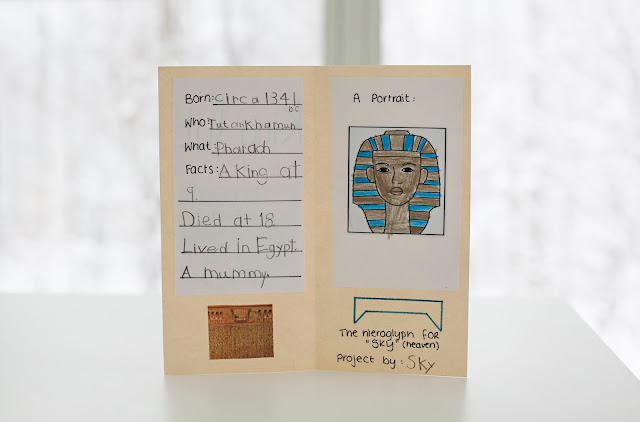 Born: circa 1341
bc
Who: Tutankhamun
What: Pharaoh
Facts: A King at
9.
Died at 18
Lived in Egypt.
A mummy.
A Portrait:
The hieroglyph FOR
"SKY" (heaven)
Project by: Sky